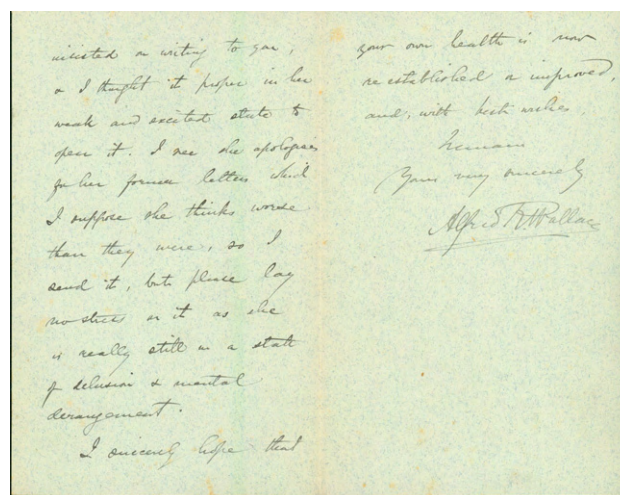 insisted on writing to you,
& I thought it proper in her
weak and excited state to
open it. I see she apologises
for her former letters which
I suppose she thinks worse
than they were, so I
send it, but please lay
no stress on it as she
is really still in a state
of delusion & mental
derangement.
I sincerely hope that
your own health is now
re-established or improved,
and, with best wishes,
remain
Yours very sincerely
Alfred R Wallace